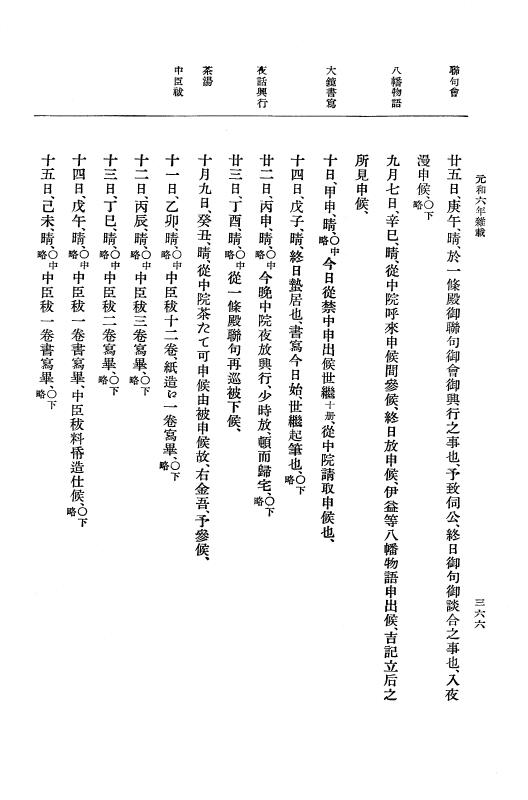 元和六年雜載
三六六
聯句會
廿五日、庚午、晴、於一條殿御聯句御會御興行之事也、予致伺公、終日御句御談合之事也、入夜
漫申候、〇下略
八幡物語
九月七日、辛巳、晴、從中院呼來申候間參候、終日放申候、伊益等八幡物語申出候、吉記立后之
所見申候、
大鏡書寫
十日、甲申、晴、〇中略今日從禁中申出候世繼十册、從中院請取申候也、
十四日、戊子、晴、終日蟄居也、書寫今日始、世繼起筆也、〇下略
夜話興行
廿二日、丙申、晴、〇中略今晩中院夜放興行、少時放、頓而歸宅、〇下略
廿三日、丁酉、晴、〇中略從一條殿聯句再巡被下候、
茶湯
十月九日、癸丑、晴、從中院茶たて可申候由被申候故、右金吾、予參候、
中臣祓
十一日、乙卯、晴、〇中略中臣秡十二卷、紙造い一卷寫畢、〇下略
十二日、丙辰、晴、〇中略中臣秡三卷寫畢、〇下略
十三日、丁巳、晴、〇中略中臣秡二卷寫畢、〇下略
十四日、戊午、晴、〇中略中臣秡一卷書寫畢、中臣秡料帋造仕候、〇下略
十五日、己未、晴、〇中略中臣秡一卷書寫畢、〇下略